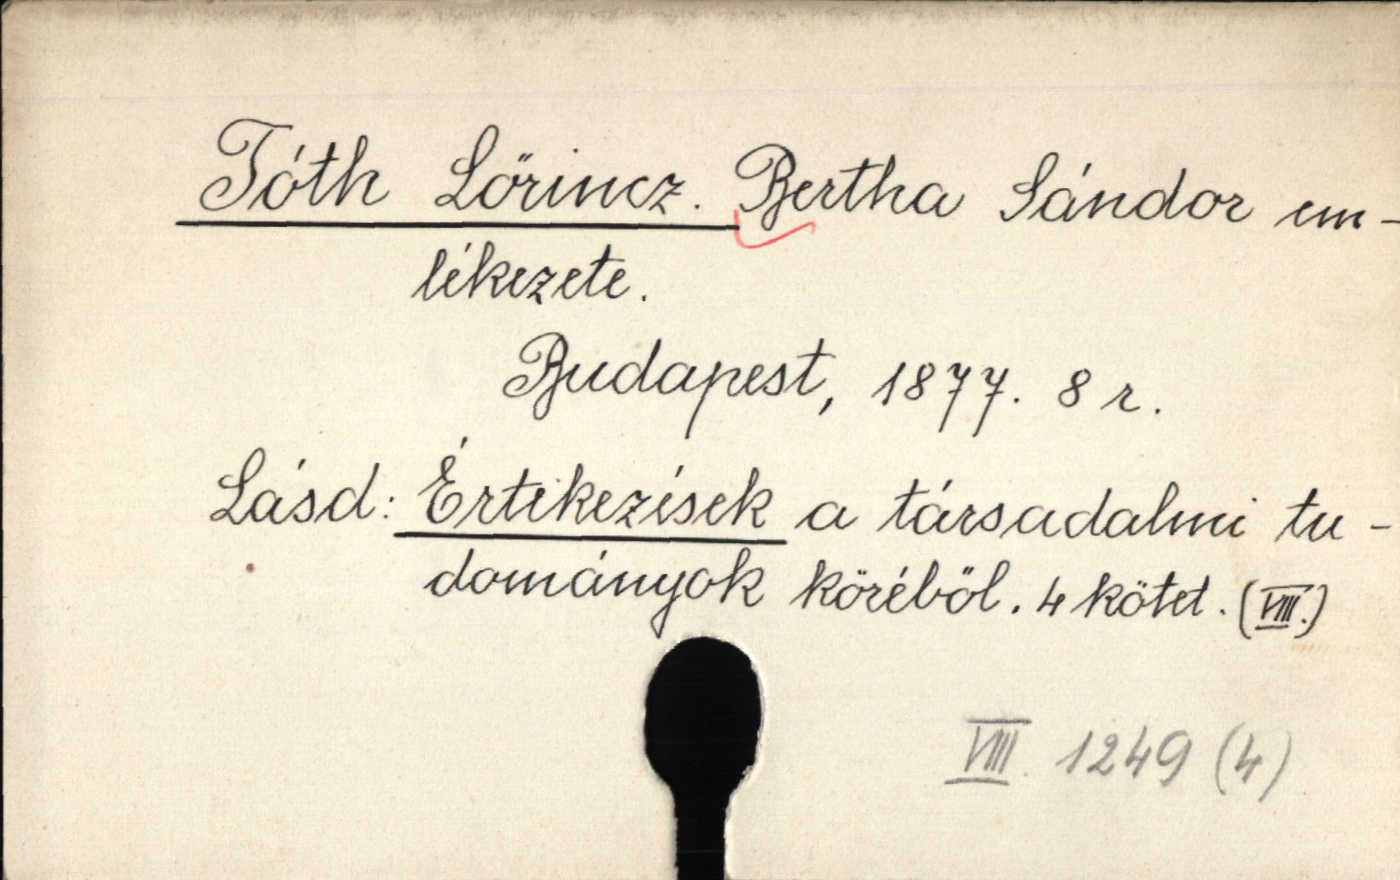 Tóth Lőrincz. Bertha Sándor em-
lékezete.
Budapest, 1877. 8 r.
Lásd: Értekezések a társadalmi tu-
dományok köréből. 4 kötet. (VIII.)
VIII. 1249 (4)